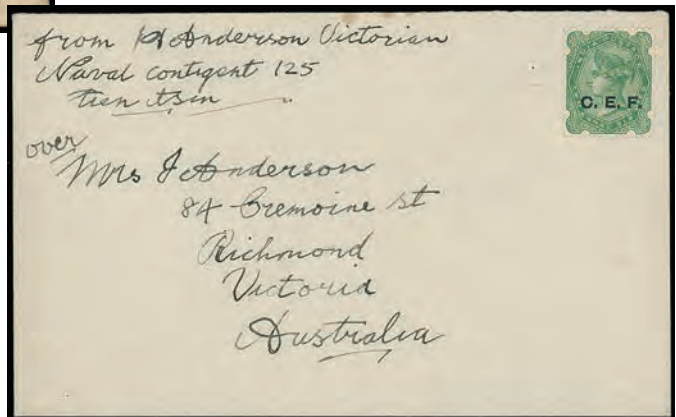 from H Anderson Victorian
Naval contigent 125
tien tsin
over
Mrs J Anderson
84 Cremoine st
Richmond
Victoria
Australia
C. E. F.